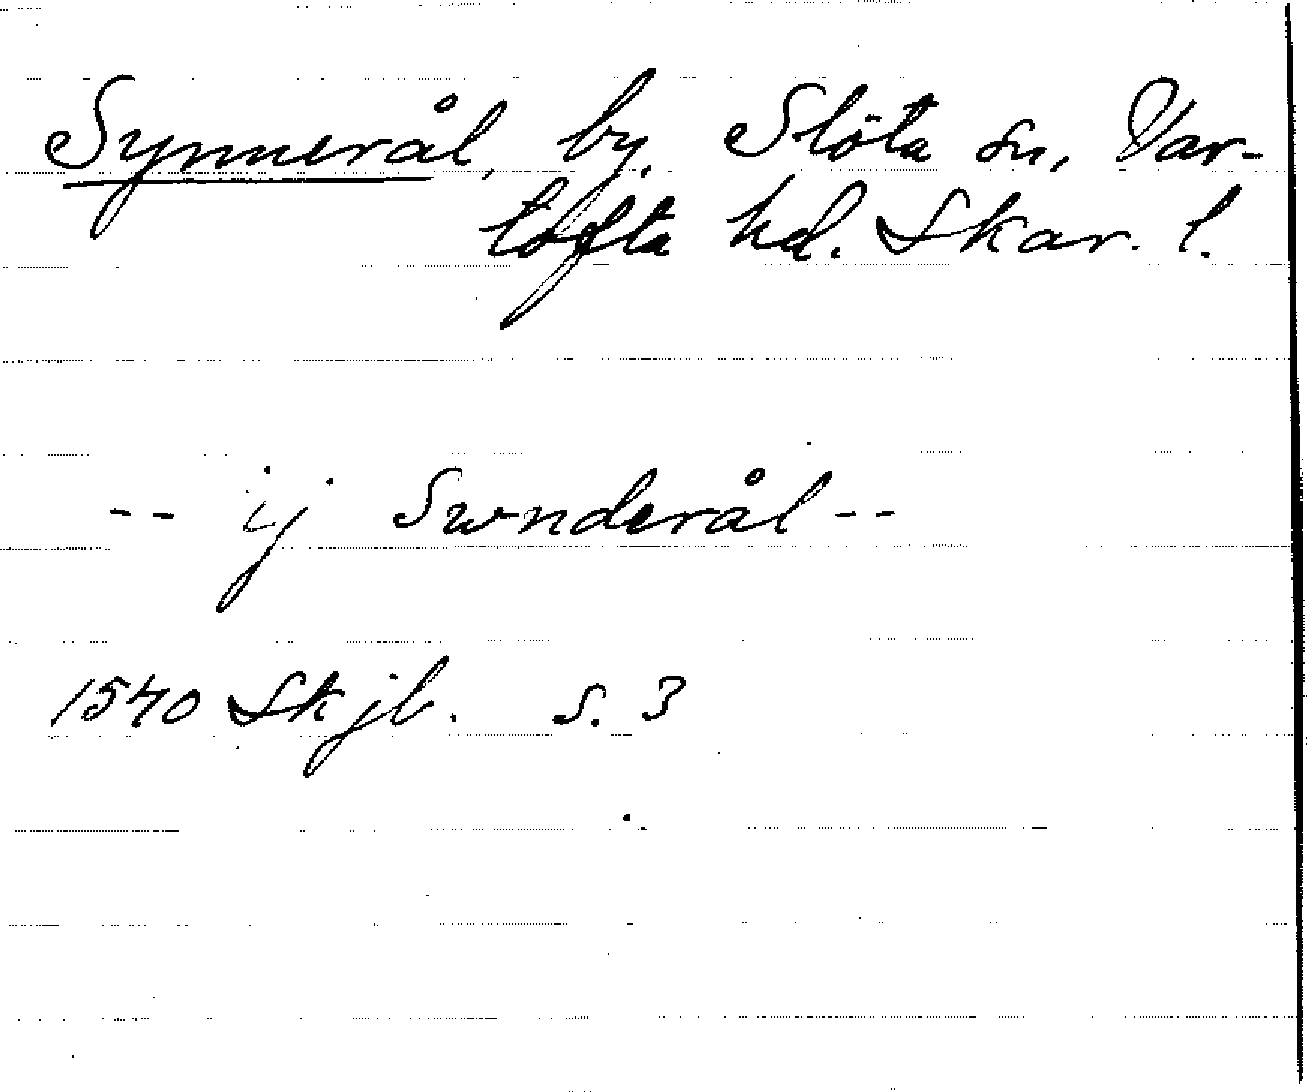 Synnerål, by, Slöta sn, Var-
tofta hd. Skar. l.
-- ij Swnderål --
1540 Skjb. s. 3